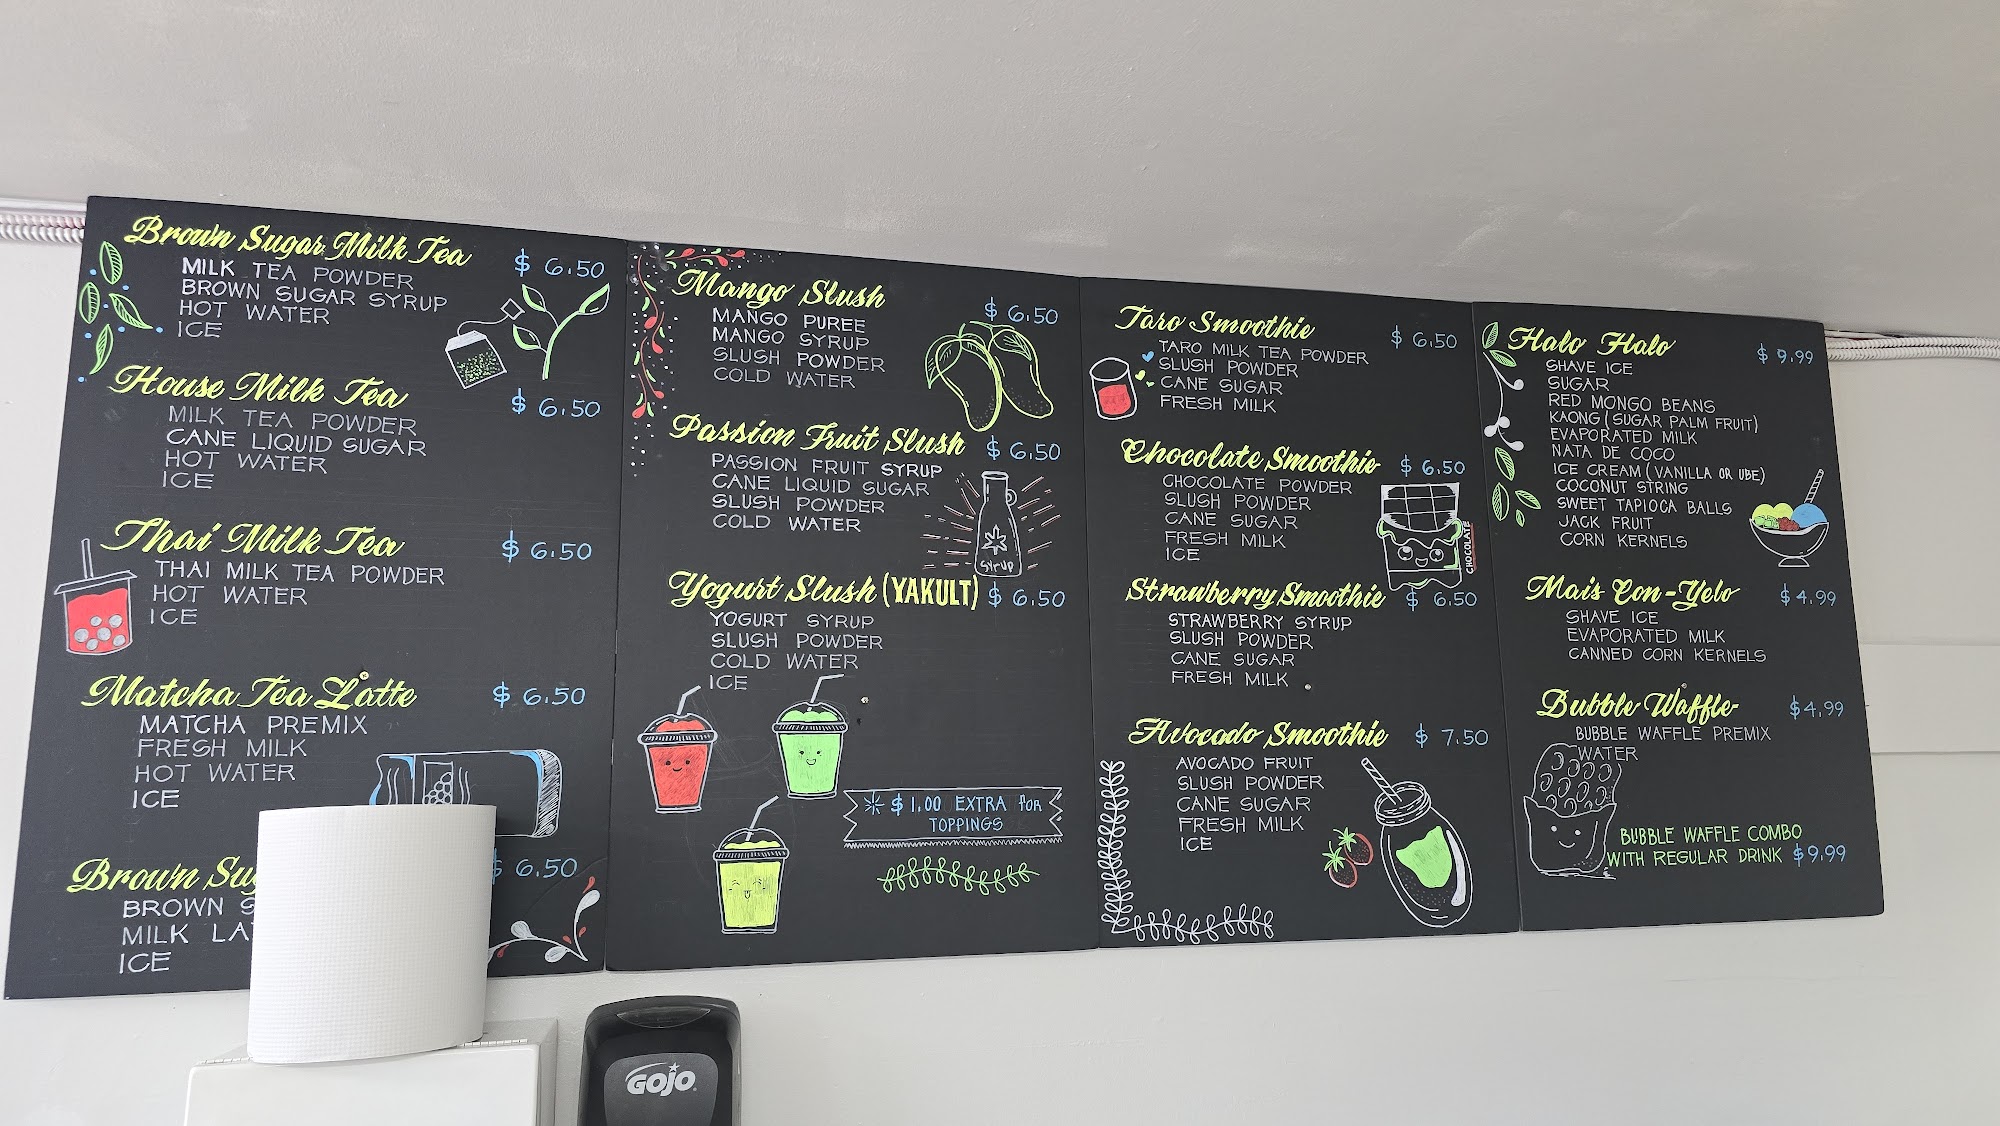 Brown Sugar Milk Tea $ 6.50
MILK TEA POWDER
BROWN SUGAR SYRUP
HOT WATER
ICE
House Milk Tea $ 6.50
MILK TEA POWDER
CANE LIQUID SUGAR
HOT WATER
ICE
Thai Milk Tea $ 6.50
THAI MILK TEA POWDER
HOT WATER
ICE
Matcha Tea Latte $ 6.50
MATCHA PREMIX
FRESH MILK
HOT WATER
ICE
Brown $ 6.50
BROWN
MILK
ICE
Mango Slush $ 6.50
MANGO PUREE
MANGO SYRUP
SLUSH POWDER
COLD WATER
Passion Fruit Slush $ 6.50
PASSION FRUIT SYRUP
CANE LIQUID SUGAR
SLUSH POWDER
COLD WATER
Syrup
Yogurt Slush (YAKULT) $ 6.50
YOGURT SYRUP
SLUSH POWDER
COLD WATER
ICE
$ 1.00 EXTRA for
TOPPINGS
Taro Smoothie $ 6.50
TARO MILK TEA POWDER
SLUSH POWDER
CANE SUGAR
FRESH MILK
Chocolate Smoothie $ 6.50
CHOCOLATE POWDER
SLUSH POWDER
CANE SUGAR
FRESH MILK
ICE
CHOCOLATE
Strawberry Smoothie $ 6.50
STRAWBERRY SYRUP
SLUSH POWDER
CANE SUGAR
FRESH MILK
Avocado Smoothie $ 7.50
AVOCADO FRUIT
SLUSH POWDER
CANE SUGAR
FRESH MILK
ICE
Halo Halo $ 9.99
SHAVE ICE
SUGAR
RED MONGO BEANS
KAONG (SUGAR PALM FRUIT)
EVAPORATED MILK
NATA DE COCO
ICE CREAM (VANILLA OR UBE)
COCONUT STRING
SWEET TAPIOCA BALLS
JACK FRUIT
CORN KERNELS
Mais Con-Yelo $ 4.99
SHAVE ICE
EVAPORATED MILK
CANNED CORN KERNELS
Bubble Waffle $4.99
BUBBLE WAFFLE PREMIX
WATER
BUBBLE WAFFLE COMBO
WITH REGULAR DRINK $9.99
GOJO